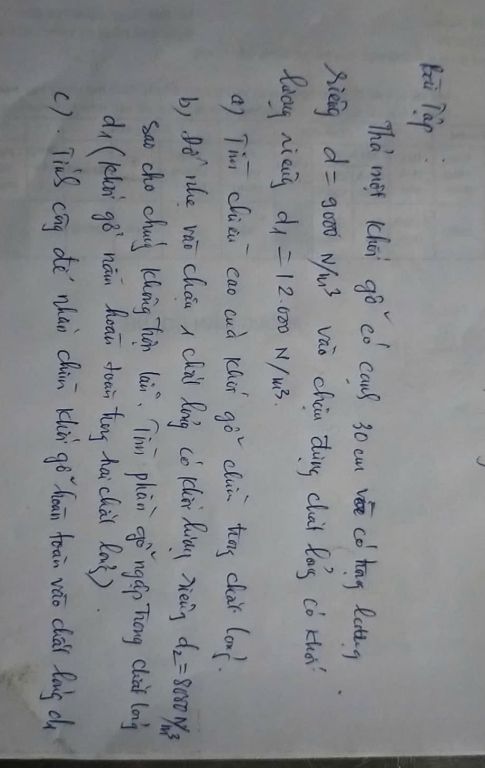 Bài Tập.
Thả một khối gỗ có cạnh 30 cm có trọng lượng
riêng d = 9000 N/m³ vào chậu đựng chất lỏng có khối
lượng riêng d1 = 12.000 N/m³.
a) Tìm chiều cao của khối gỗ chìm trong chất lỏng.
b) Đổ nhẹ vào chậu 1 chất lỏng có khối lượng riêng d2 = 8000 N/m³
sao cho chúng không trộn lẫn. Tìm phần gỗ ngập trong chất lỏng
d1 (khối gỗ nằm hoàn toàn trong hai chất lỏng)
c). Tính công để nhấn chìm khối gỗ hoàn toàn vào chất lỏng d1